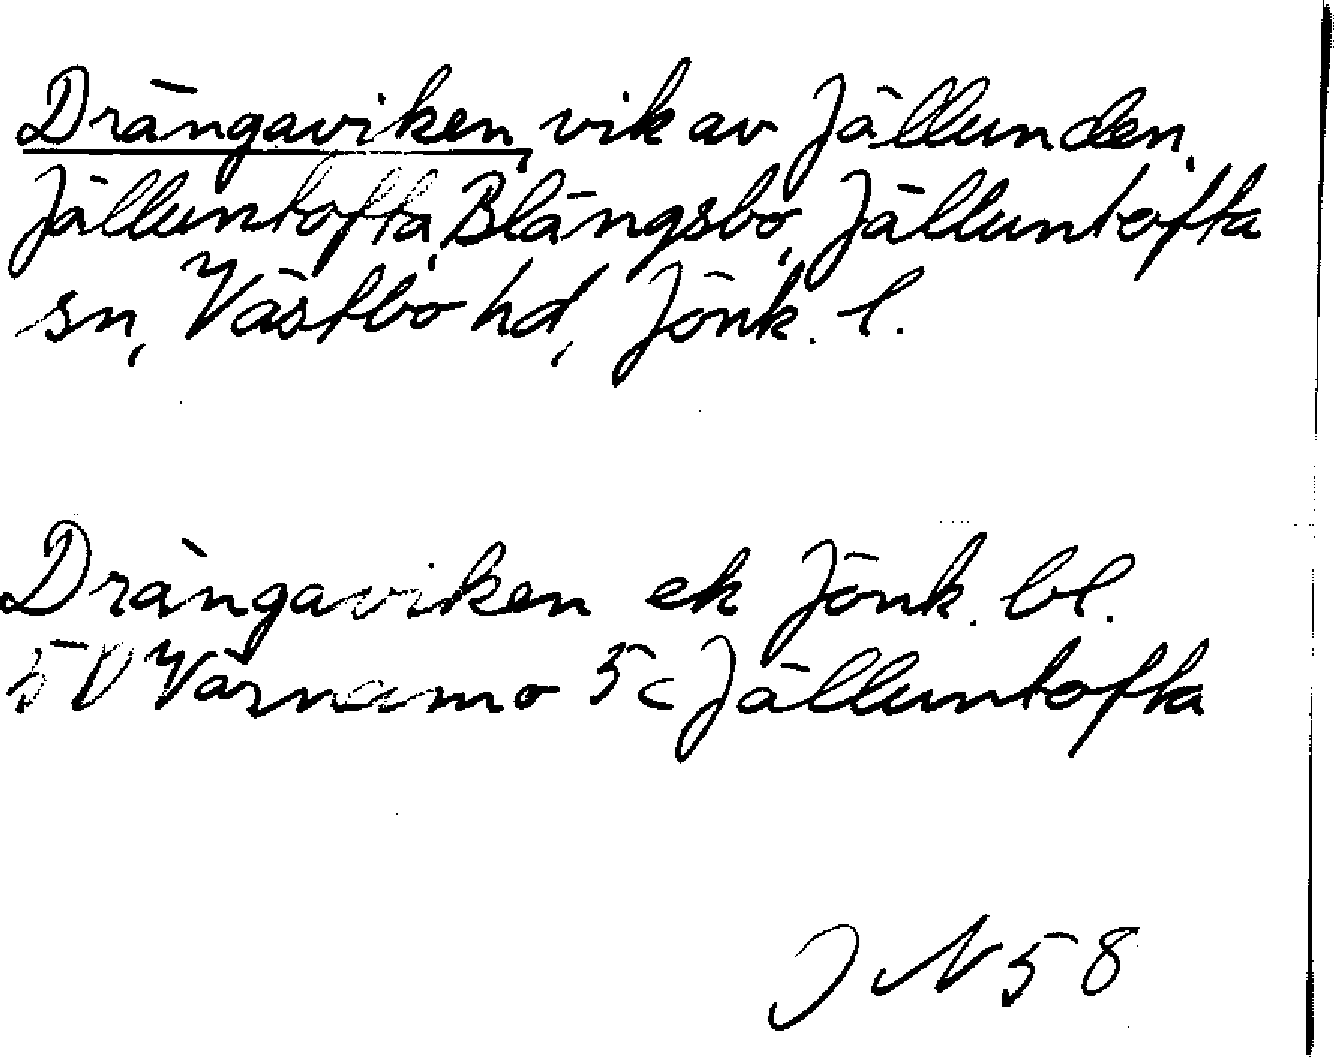 Drängaviken, vik av Jällunden,
Jälluntofta, Blängsbo, Jälluntofta
sn, Västbo hd, Jönk. l.
Drängaviken ek Jönk. bl.
5D Värnamo 5c Jälluntofta
J N 58